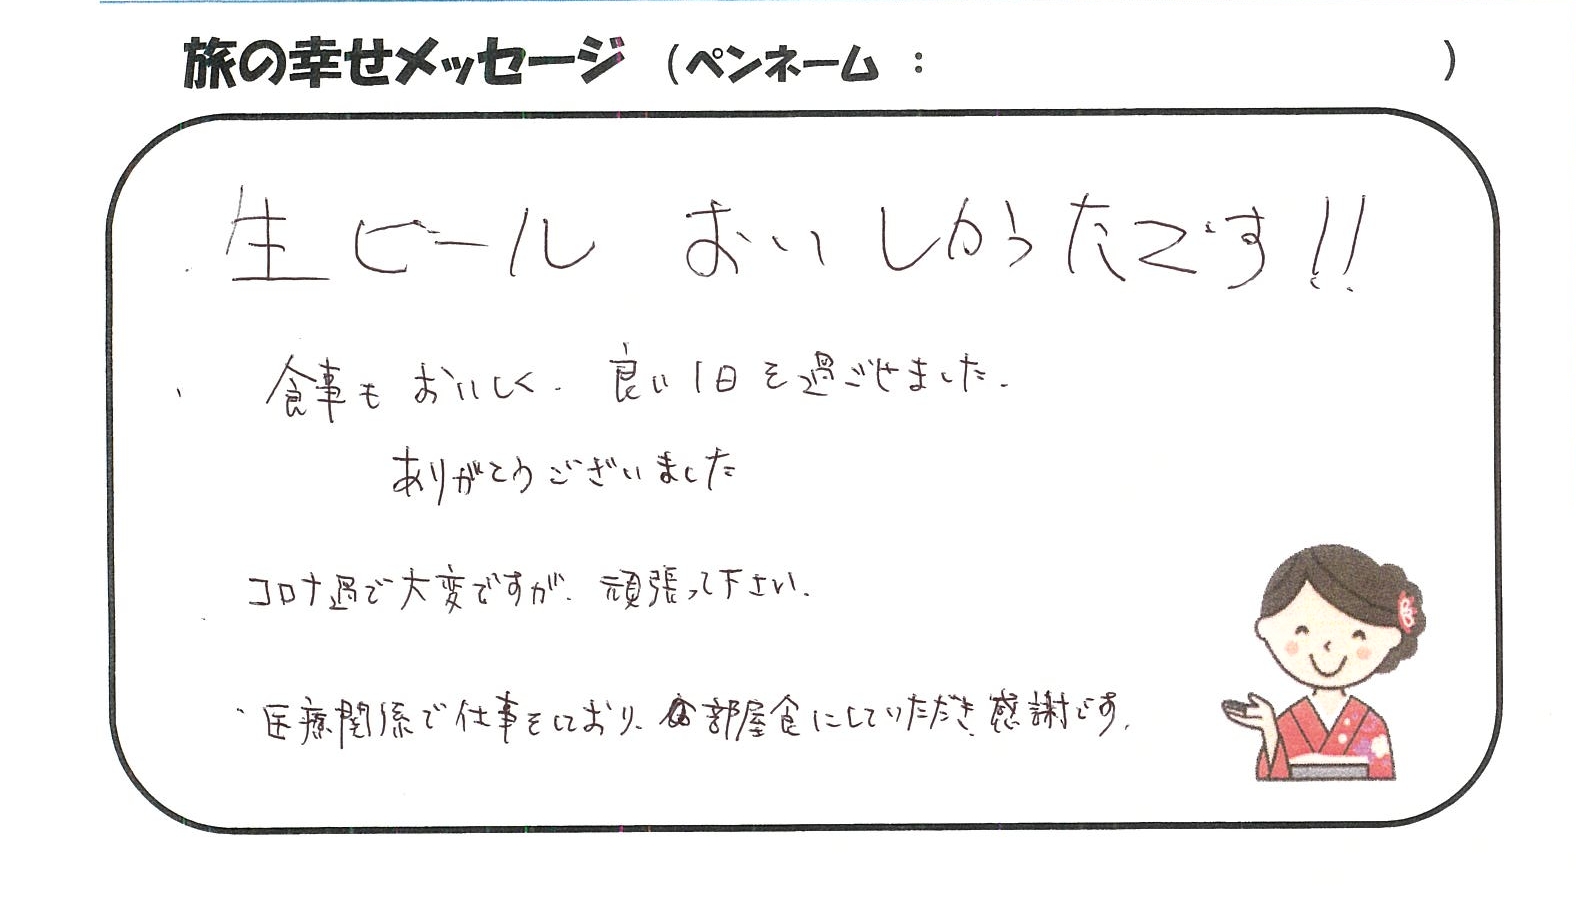 旅の幸せメッセージ （ペンネーム ： ）
生ビール おいしかったです!!
食事もおいしく、良い1日を過ごせました。
ありがとうございました
コロナ過で大変ですが、頑張って下さい。
医療関係で仕事をしており、部屋食にしていただき感謝です。